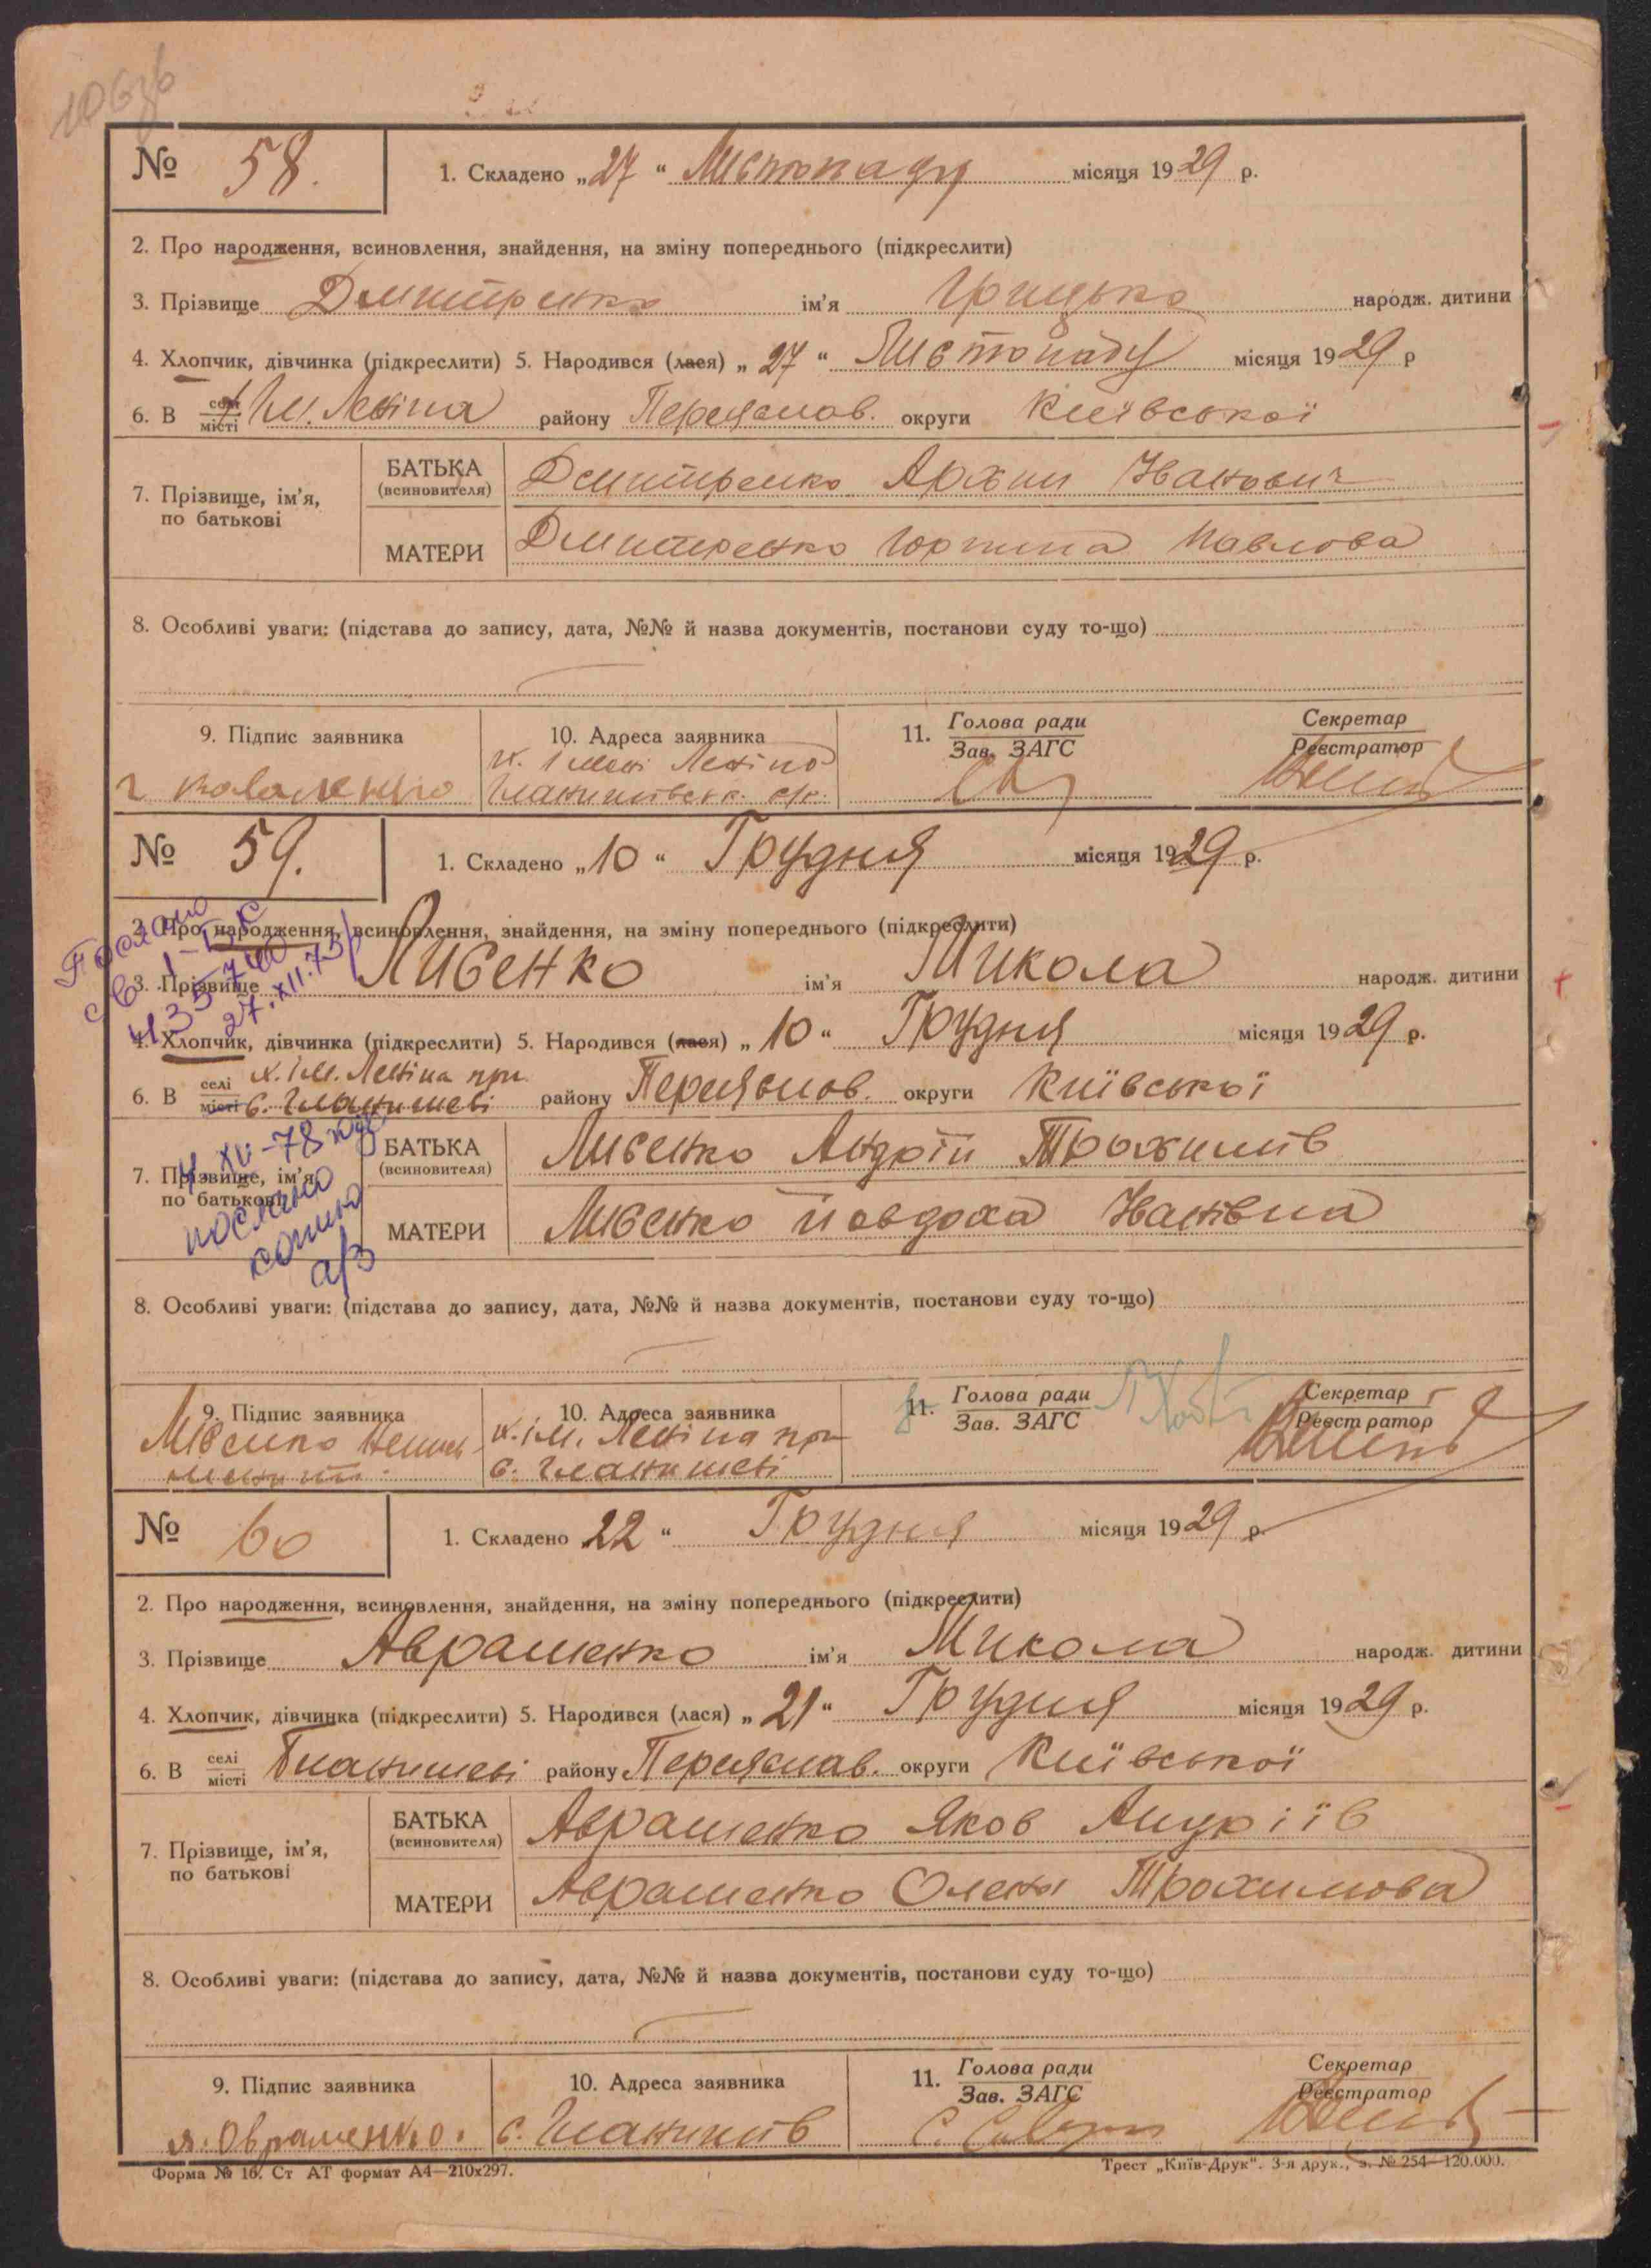 № 58. 1. Складено „27“ Листопаду місяця 1929 р.
2. Про народження, всиновлення, знайдення, на зміну попереднього (підкреслити)
3. Прізвище Дмитренко ім'я Грицько народж. дитини
4. Хлопчик, дівчинка (підкреслити) 5. Народився (лася) „27“ Листопаду місяця 1929 р
6. В селі місті х. ім. Леніна району Переяслав. округи Київської
7. Прізвище, ім'я, по батькові
БАТЬКА (всиновителя) Дмитренко Архип Іванович
МАТЕРИ Дмитренко Горпина Павлова
8. Особливі уваги: (підстава до запису, дата, №№ й назва документів, постанови суду то-що)
9. Підпис заявника 10. Адреса заявника 11. Голова ради Зав. ЗАГС Секретар Реєстратор
х. імені Леніна
Гланишівськ. с/р.
№ 59. 1. Складено „10“ Грудня місяця 1929 р.
2. Про народження, всиновлення, знайдення, на зміну попереднього (підкреслити)
3. Прізвище Лисенко ім'я Микола народж. дитини
4. Хлопчик, дівчинка (підкреслити) 5. Народився (лася) „10“ Грудня місяця 1929 р.
6. В селі місті х. ім. Леніна при с. Гланишеві району Переяслов. округи Київської
7. Прізвище, ім'я, по батькові
БАТЬКА (всиновителя) Лисенко Андрій Трохимів
МАТЕРИ Лисенко Йовдоха Іванівна
27.XII.73
послано
копию
а/з
8. Особливі уваги: (підстава до запису, дата, №№ й назва документів, постанови суду то-що)
9. Підпис заявника 10. Адреса заявника 11. Голова ради Зав. ЗАГС Секретар Реєстратор
Лисенко
х. ім. Леніна при
с. Гланишеві
№ 60 1. Складено 22 “ Грудня місяця 1929 р.
2. Про народження, всиновлення, знайдення, на зміну попереднього (підкреслити)
3. Прізвище Авраменко ім'я Микола народж. дитини
4. Хлопчик, дівчинка (підкреслити) 5. Народився (лася) „21“ Грудня місяця 1929 р.
6. В селі місті Гланишеві району Переяслав. округи Київської
7. Прізвище, ім'я, по батькові
БАТЬКА (всиновителя) Авраменко Яков Андріїв
МАТЕРИ Авраменко Олена Трохимова
8. Особливі уваги: (підстава до запису, дата, №№ й назва документів, постанови суду то-що)
9. Підпис заявника 10. Адреса заявника 11. Голова ради Зав. ЗАГС Секретар Реєстратор
я. Овраменко. с. Гланишів
Форма № 16. Ст АТ формат А4—210х297. Трест „Київ-Друк“. 3-я друк., з. № 254—120.000.